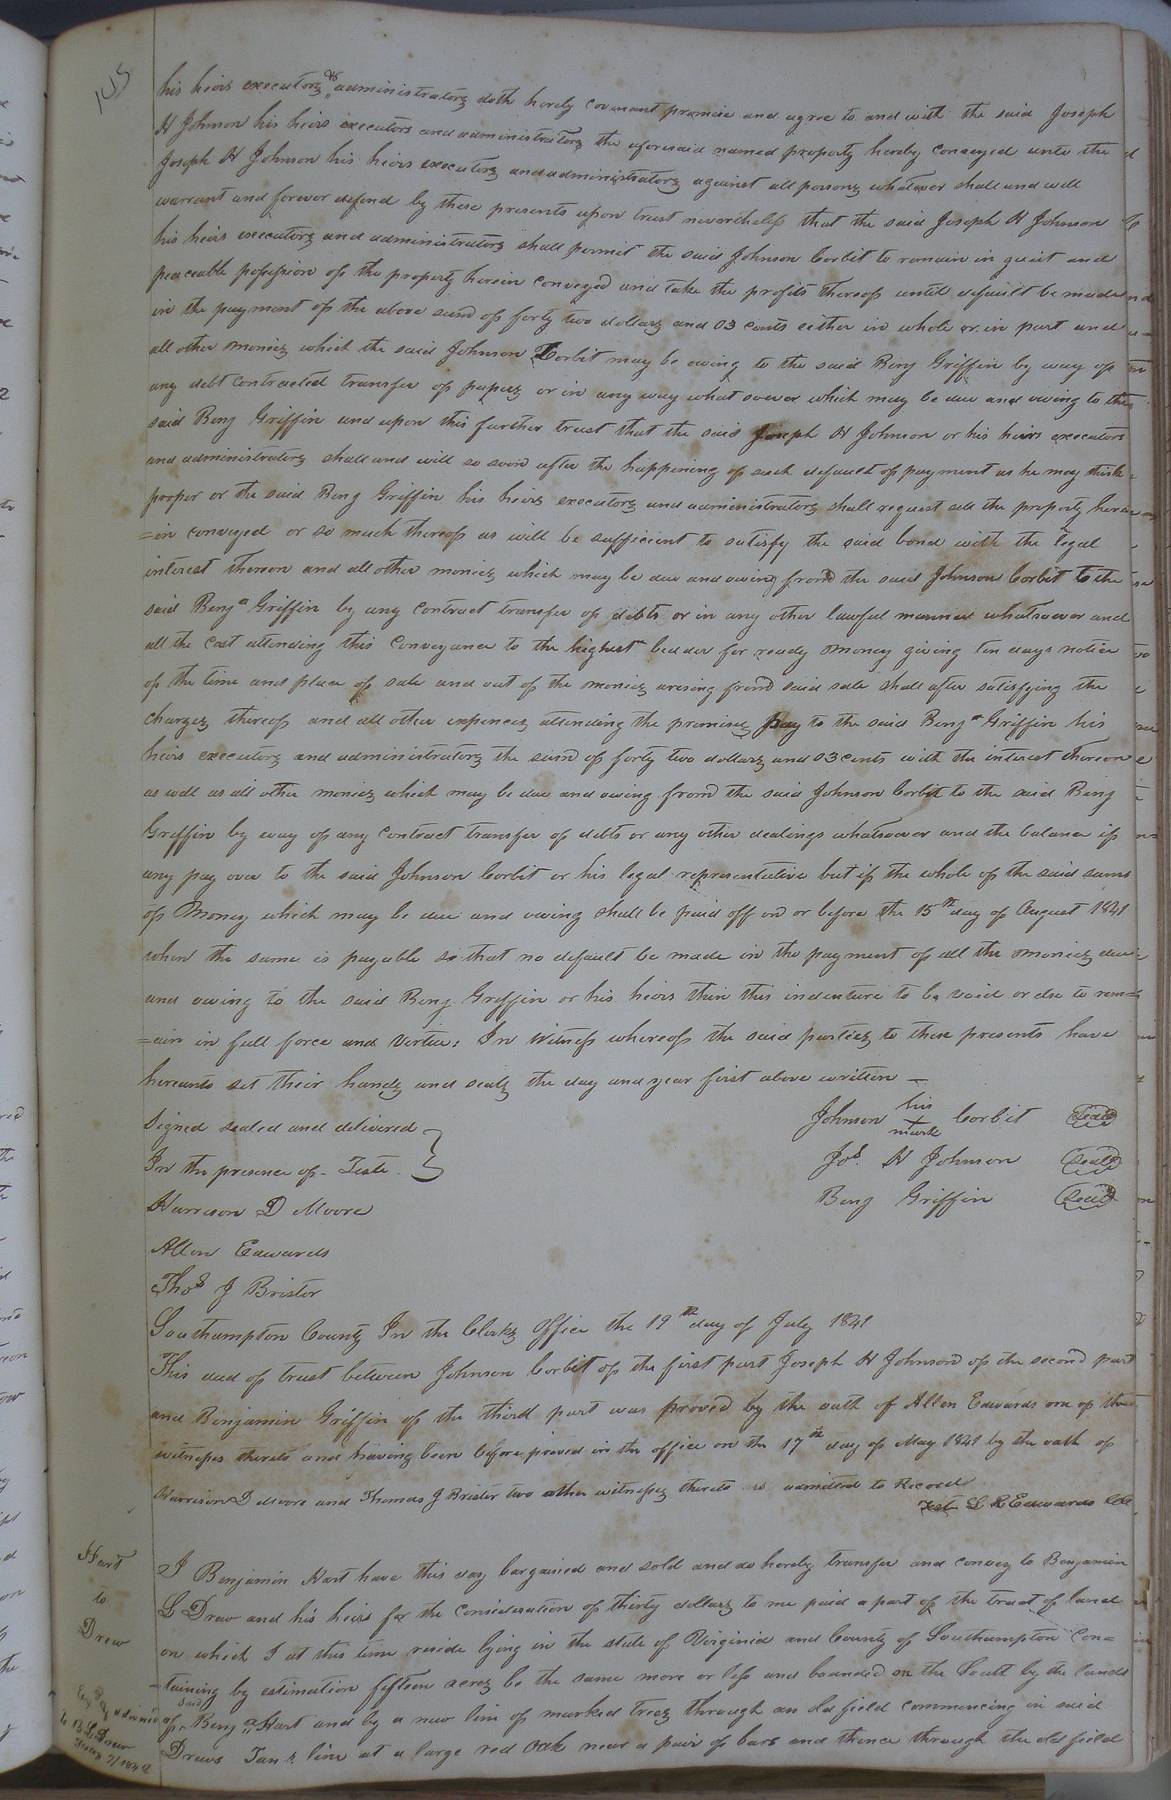 105
his heirs executors & administrators doth hereby covenant promise and agree to and with the said Joseph
H Johnson his heirs executors and administrators the aforesaid named property hereby conveyed unto the
Joseph H Johnson his heirs executors and administrators against all persons whatever shall and will
warrant and forever defend by these presents upon trust nevertheless that the said Joseph H Johnson
his heirs executors and administrators shall permit the said Johnson Corbit to remain in quiet and
peaceable possession of the property herein conveyed and take the profits thereof until default be made
in the payment of the above sum of forty two dollars and 03 cents either in whole or in part and
all other monies which the said Johnson Corbit may be owing to the said Benj Griffin by way of
any debt contracted transfer of papers or in any way what soever which may be due and owing to the
said Benj Griffin and upon this further trust that the said Joseph H Johnson or his heirs executors
and administrators shall and will so soon after the happening of such default of payment as he may think
proper or the said Benj Griffin his heirs executors and administrators shall request sell the property here
=in conveyed or so much thereof as will be sufficient to satisfy the said bond with the legal
interest thereon and all other monies which may be due and owing from the said Johnson Corbit to the
said Benja Griffin by any contract transfer of debts or in any other lawful manner whatsoever and
all the cost attending this conveyance to the highest bedder for ready money giving ten days notice
of the time and place of sale and out of the monies arising from said sale shall after satisfying the
charges thereof and all other expences attending the premises pay to the said Benja Griffin his
heirs executors and administrators the sum of forty two dollars and 03 cents with the interest thereon
as well as all other monies which may be due and owing from the said Johnson Corbit to the said Benj
Griffin by way of any contract transfer of debts or any other dealings whatsoever and the balance if
any pay over to the said Johnson Corbit or his legal representative but if the whole of the said sums
of money which may be due and owing shall be paid off on or before the 15th day of August 1841
when the same is payable so that no default be made in the payment of all the monies due
and owing to the said Benj Griffin or his heirs then this indenture to be void or else to rem=
=ain in full force and virtue: In Witness whereof the said parties to these presents have
hereunto set their hands and seals the day and year first above written —
Signed sealed and delivered
In the presence of - Teste
Johnson his + mark Corbit Seal
Jos. H Johnson Seal
Benj Griffin Seal
Harrison D Moore
Allen Edwards
Thos J Brister
Southampton County In the Clerks Office the 19th day of July 1841
This deed of trust between Johnson Corbit of the first part Joseph H Johnson of the second part
and Benjamin Griffin of the third part was proved by the oath of Allen Edwards one of the
witnesses thereto and having been before proved in the office on the 17th day of May 1841 by the oath of
Harrison D Moore and Thomas J Brister two other witnesses thereto is admitted to Record
Test L R Edwards
Hart
to
Drew
I Benjamin Hart have this day bargained and sold and do hereby transfer and convey to Benjamin
L Drew and his heirs for the consideration of thirty dollars to me paid a part of the tract of land
on which I at this time reside lying in the state of Virginia and County of Southampton Con=
=taining by estimation fifteen acres be the same more or less and bounded on the South by the lands
of said Benja Hart and by a new line of marked trees through an old field commencing in said
Drews line at a large red Oak near a pair of bars and thence through the old field
to B L Drew